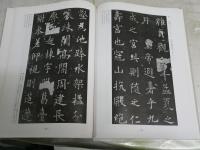 觀孟夏之
月帝避暑乎九
成之宮此則隨之仁
壽宮也冠山抗殿絕
壑為池跨水架楹分
巖竦闕高閣周建長
廊四起棟宇膠葛臺
榭參差仰視則迢遰